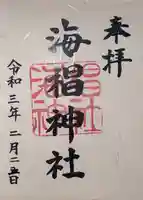 奉拝
海椙神社
令和三年二月二五日